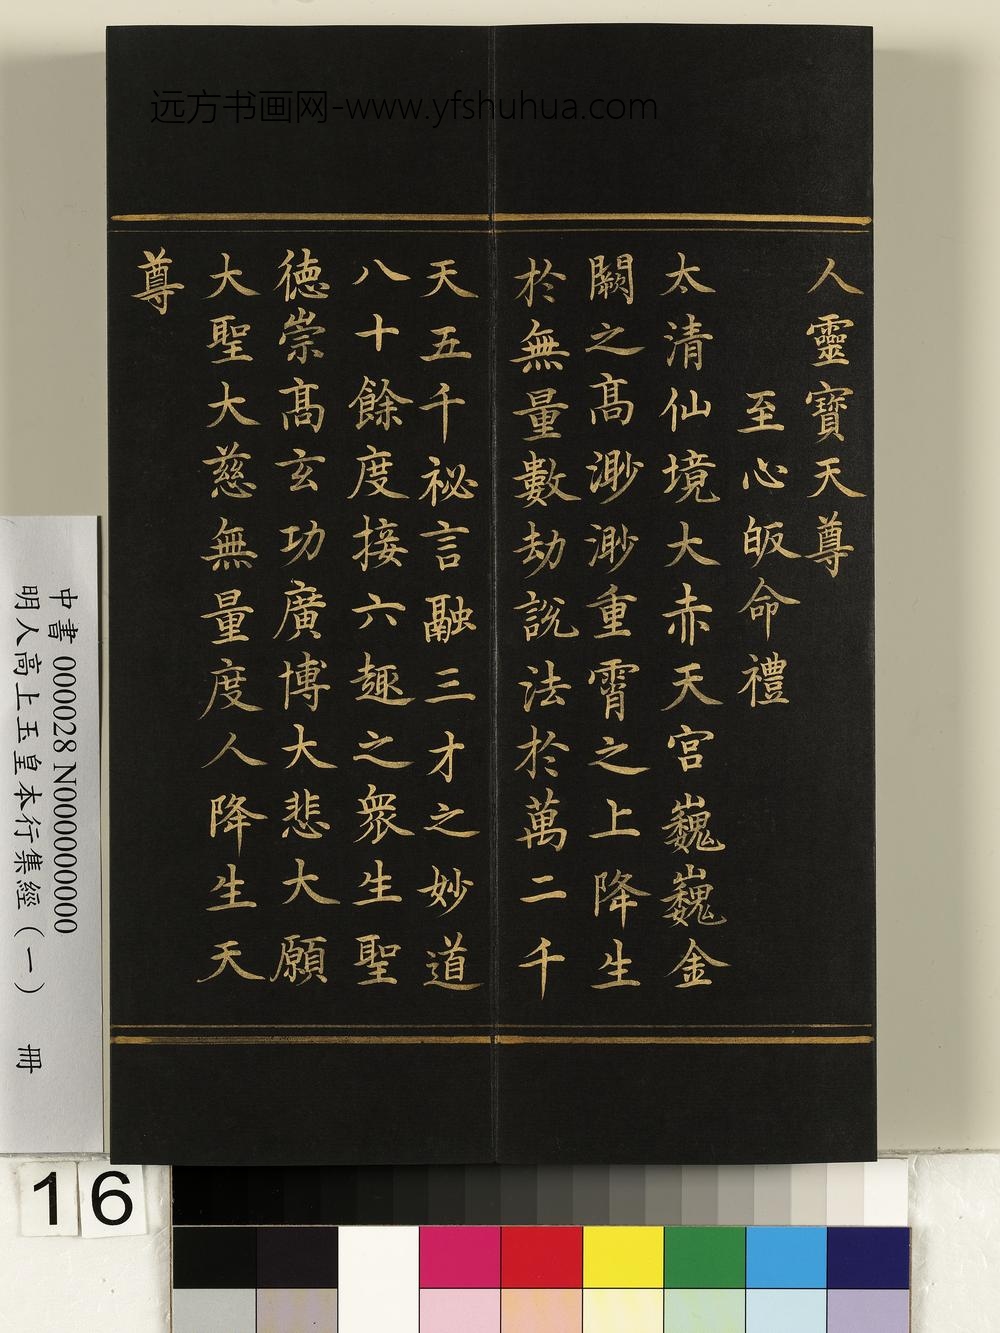 远方书画网-www.yfshuhua.com
人靈寶天尊
至心皈命禮
太清仙境大赤天宮巍巍金
闕之髙渺渺重霄之上降生
於無量數劫說法於萬二千
天五千祕言融三才之妙道
八十餘度接六趣之衆生聖
德崇髙玄功廣博大悲大願
大聖大慈無量度人降生天
尊
中書 000028 N000000000
明人高上玉皇本行集經（一） 冊
16